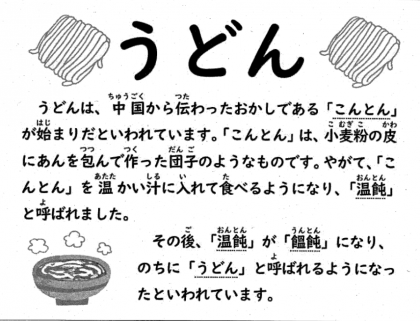 うどん
うどんは、中国から伝わったおかしである「こんとん」
が始まりだといわれています。「こんとん」は、小麦粉の皮
にあんを包んで作った団子のようなものです。やがて、「こ
んとん」を温かい汁に入れて食べるようになり、「温飩」
と呼ばれました。
その後、「温飩」が「饂飩」になり、
のちに「うどん」と呼ばれるようになっ
たといわれています。